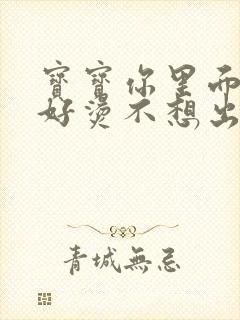 寶寶你里面
好燙不想出
青城無忌